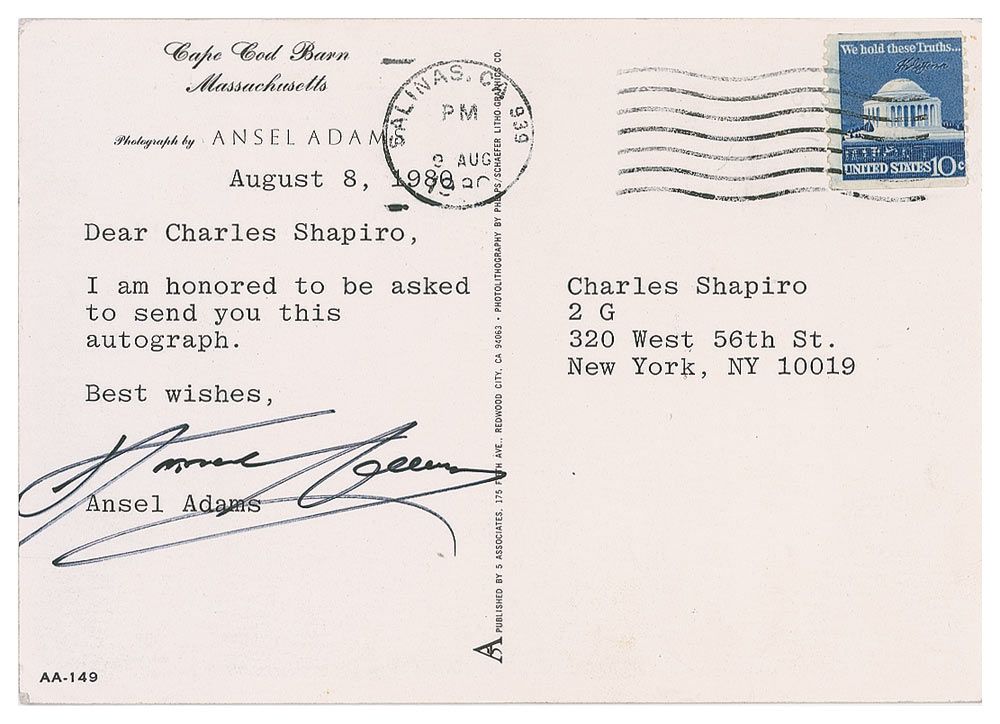 Cape Cod Barn
Massachusetts
Photograph by ANSEL ADAMS
August 8, 1980
Dear Charles Shapiro,
I am honored to be asked
to send you this
autograph.
Best wishes,
Ansel Adams
Ansel Adams
AA-149
PUBLISHED BY 5 ASSOCIATES, 175 FIFTH AVE., REDWOOD CITY, CA 94063 • PHOTOLITHOGRAPHY BY PHELPS/SCHAEFER LITHO-GRAPHICS CO.
SALINAS, CA 939
PM
8 AUG
1980
We hold these Truths...
UNITED STATES 10c
Charles Shapiro
2 G
320 West 56th St.
New York, NY 10019